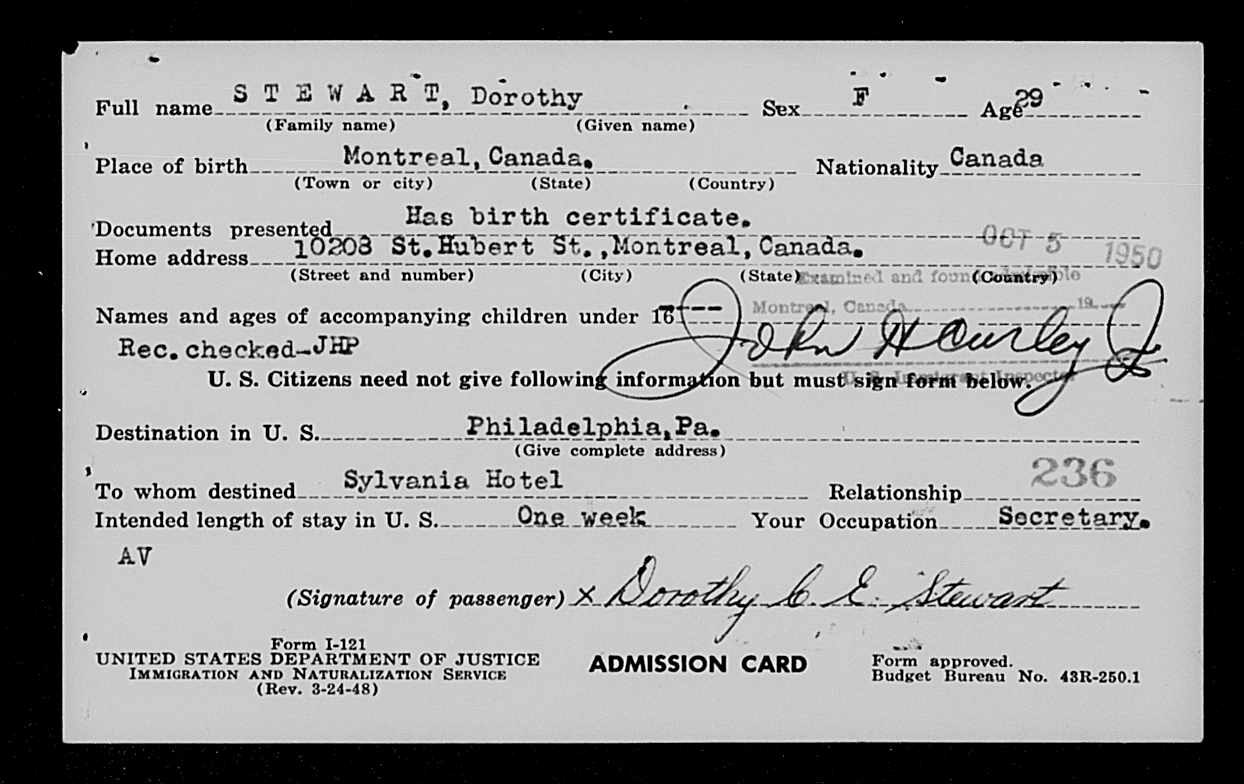 Full name S T E W A R T, Dorothy Sex F Age 29
(Family name) (Given name)
Place of birth Montreal, Canada. Nationality Canada
(Town or city) (State) (Country)
Documents presented Has birth certificate.
OCT 5 1950
Home address 10208 St. Hubert St., Montreal, Canada.
(Street and number) (City) (State) (Country)
Examined and found admissible
Montreal, Canada 19
Names and ages of accompanying children under 16 ---
John H Curley Jr
Rec. checked-JHP
U. S. Immigrant Inspector
U. S. Citizens need not give following information but must sign form below.
Destination in U. S. Philadelphia, Pa.
(Give complete address)
236
To whom destined Sylvania Hotel Relationship
Intended length of stay in U. S. One week Your Occupation Secretary.
AV
(Signature of passenger) x Dorothy C. E. Stewart
Form I-121
UNITED STATES DEPARTMENT OF JUSTICE ADMISSION CARD Form approved.
IMMIGRATION AND NATURALIZATION SERVICE Budget Bureau No. 43R-250.1
(Rev. 3-24-48)